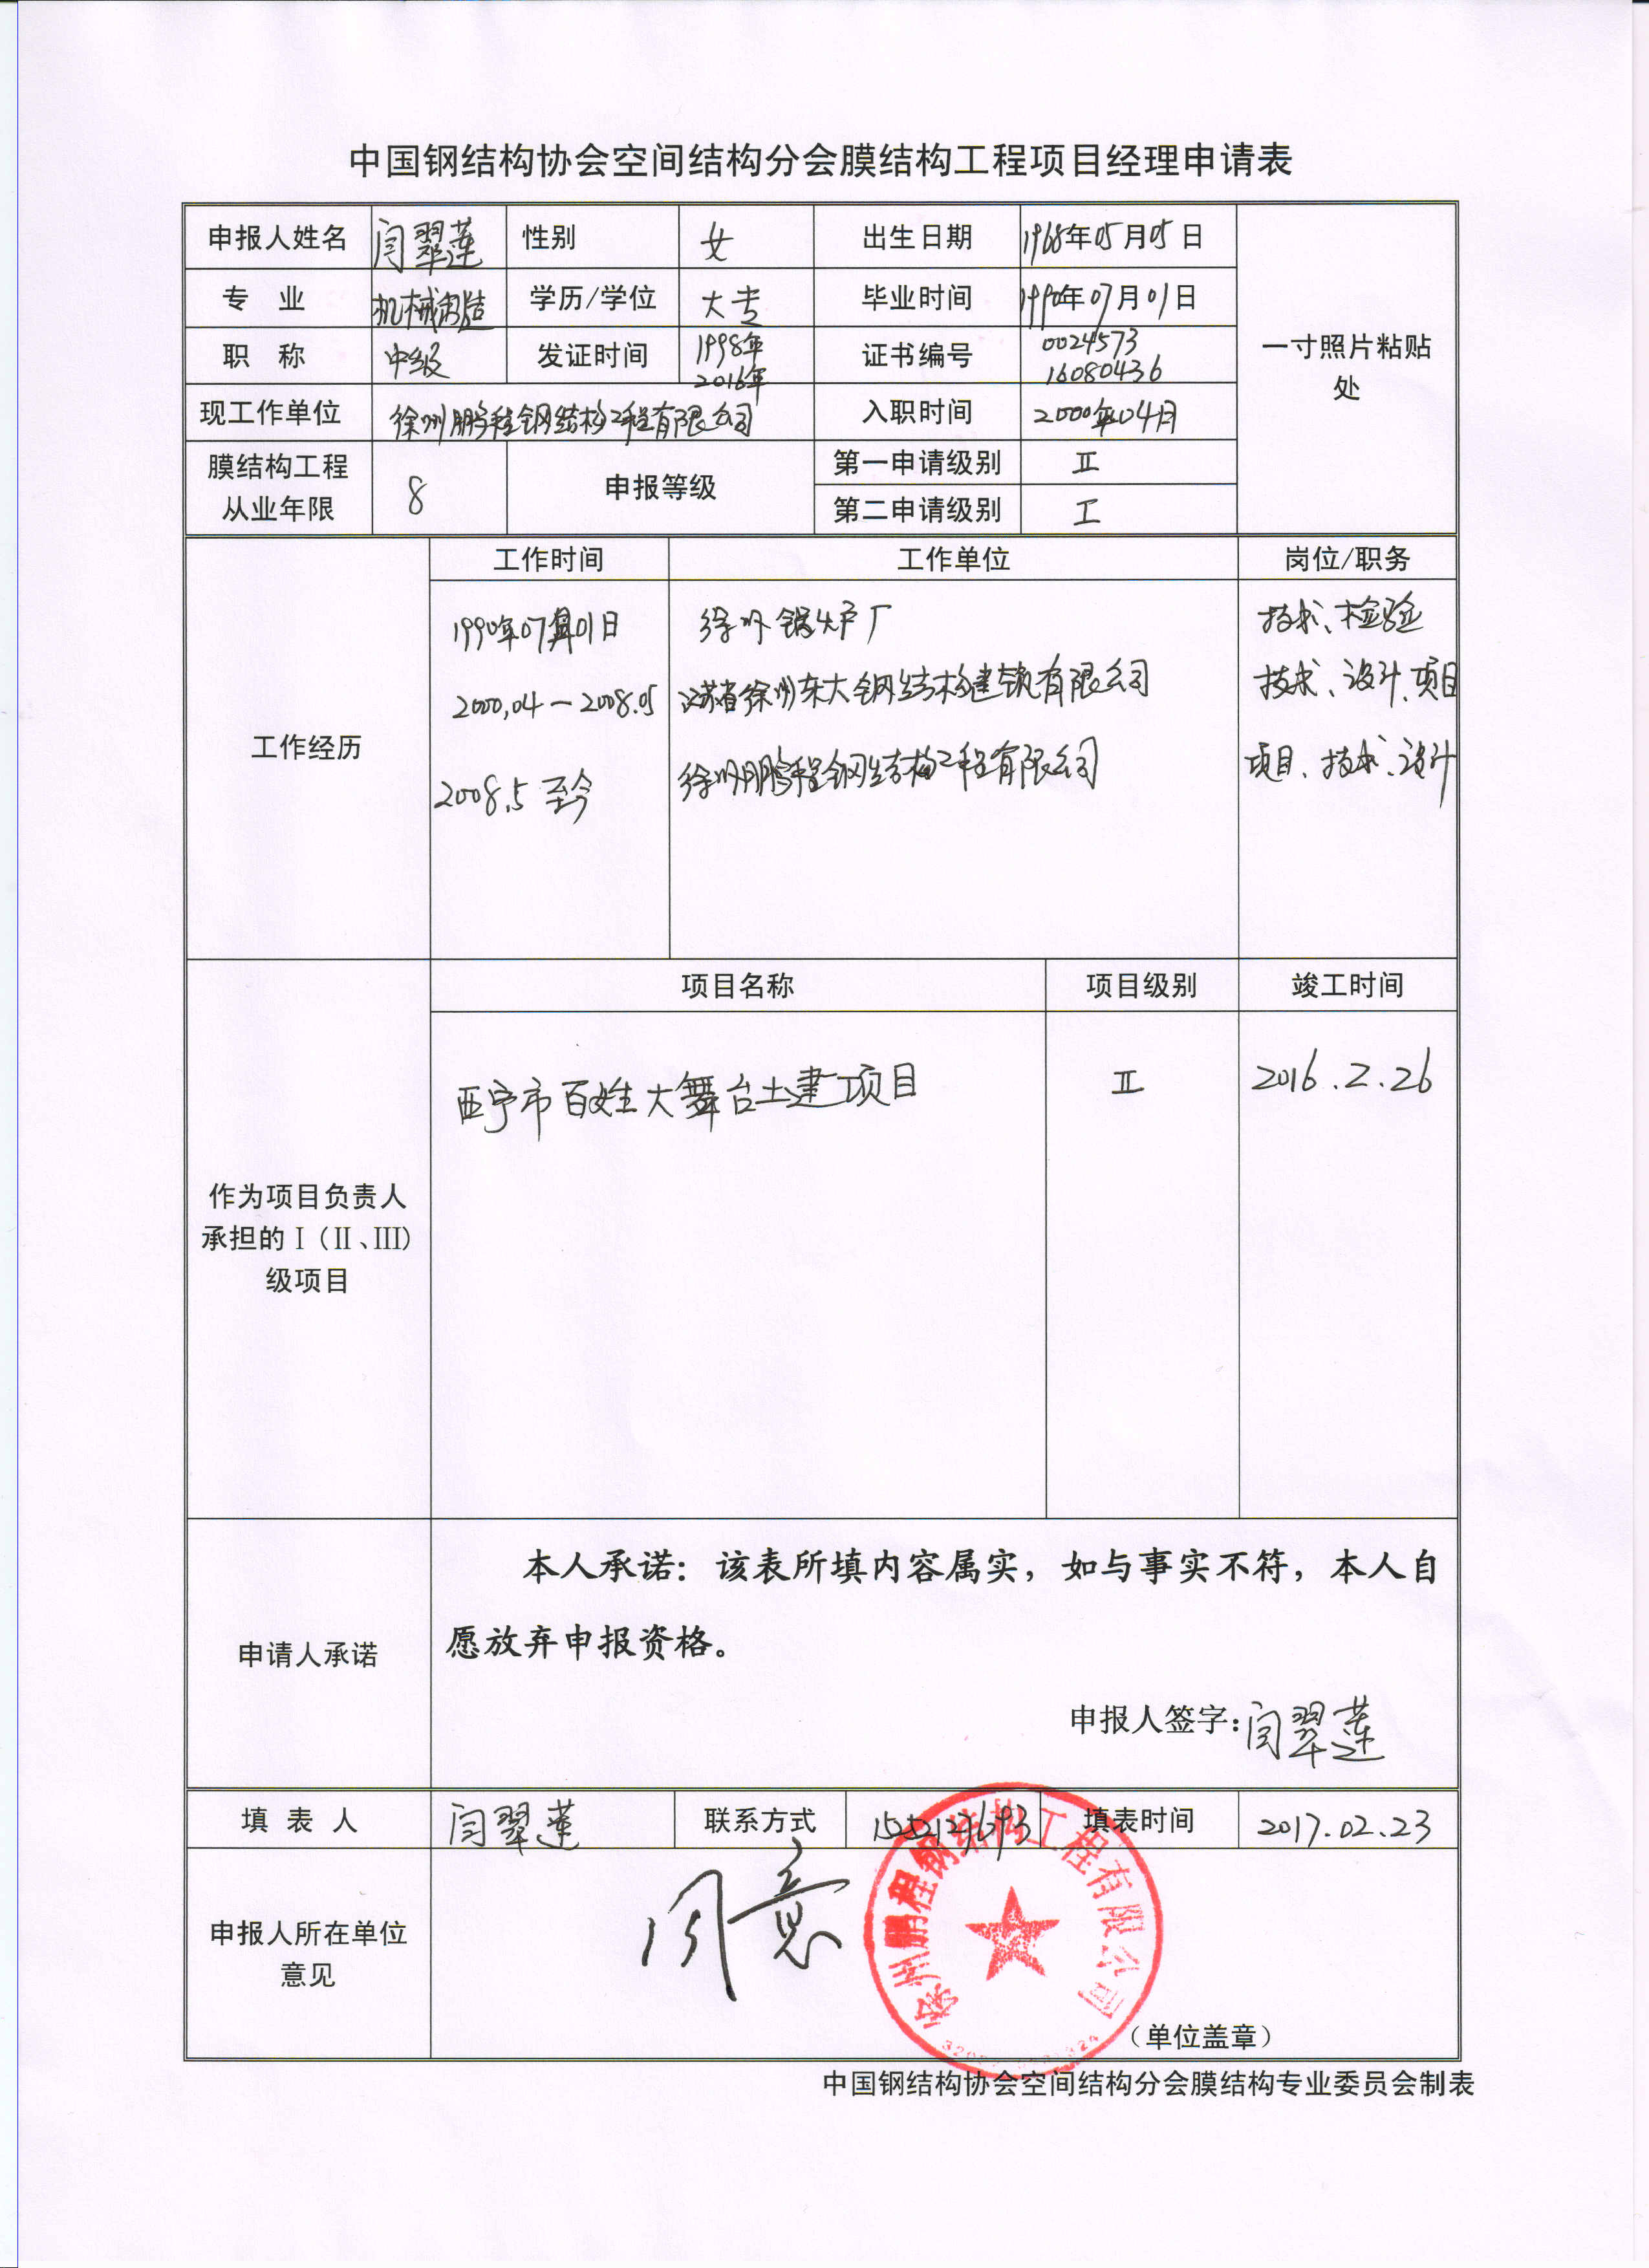 中国钢结构协会空间结构分会膜结构工程项目经理申请表
申报人姓名 闫翠莲 性别 女 出生日期 1968年05月05日
专 业 机械制造 学历/学位 大专 毕业时间 1990年07月01日
职 称 中级 发证时间 1998年 2016年 证书编号 0024573 16080436
一寸照片粘贴
处
现工作单位 徐州鹏程钢结构工程有限公司 入职时间 2000年04月
膜结构工程
从业年限 8 申报等级 第一申请级别 Ⅱ
第二申请级别 工
工作经历 工作时间 工作单位 岗位/职务
1990年07月01日 徐州锅炉厂 技术、检验
2000.04－2008.05 江苏省徐州东大钢结构建筑有限公司 技术、设计、项目
2008.5至今 徐州鹏程钢结构工程有限公司 项目、技术、设计
项目名称 项目级别 竣工时间
西宁市百姓大舞台土建项目 Ⅱ 2016.2.26
作为项目负责人
承担的Ⅰ（Ⅱ、Ⅲ）
级项目
申请人承诺
本人承诺：该表所填内容属实，如与事实不符，本人自
愿放弃申报资格。
申报人签字：闫翠莲
填 表 人 闫翠莲 联系方式 填表时间 2017.02.23
申报人所在单位
意见
同意
徐州鹏程钢结构工程有限公司
（单位盖章）
中国钢结构协会空间结构分会膜结构专业委员会制表